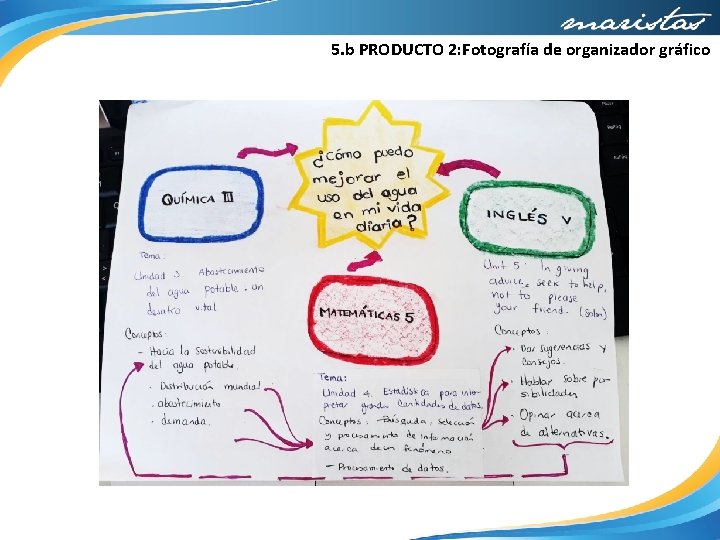 maristas
5. b PRODUCTO 2: Fotografía de organizador gráfico
¿Cómo puedo
mejorar el
uso del agua
en mi vida
diaria?
QUÍMICA III
Tema:
Unidad 3 Abastecimiento
del agua potable. un
desafío vital
Conceptos:
- Hacia la sostenibilidad
del agua potable.
. Distribución mundial
. abastecimiento
. demanda.
MATEMÁTICAS 5
Tema:
Unidad 4. Estadística para inter
pretar grandes cantidades de datos.
Conceptos: - Búsqueda, selección
y procesamiento de información
acerca de un fenómeno
- Procesamiento de datos.
INGLÉS V
Unit 5: In giving
advice, seek to help,
not to please
your friend. (Solon)
Conceptos:
. Dar sugerencias y
consejos.
. Hablar sobre po-
sibilidades
. Opinar acerca
de alternativas.